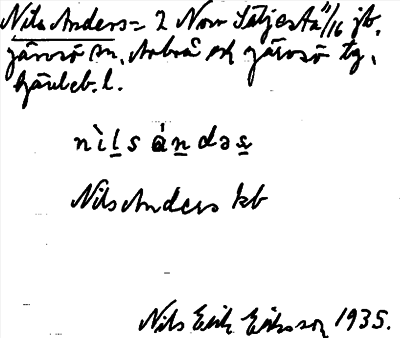 Nils Anders = 2 Norr Sätjesta 11/16 jb.
Järvsö sn, Arbrå och Järvsö tg,
Gävleb. l.
nìlsándəs
Nils Anders kb
Nils Erik Eriksson 1935.